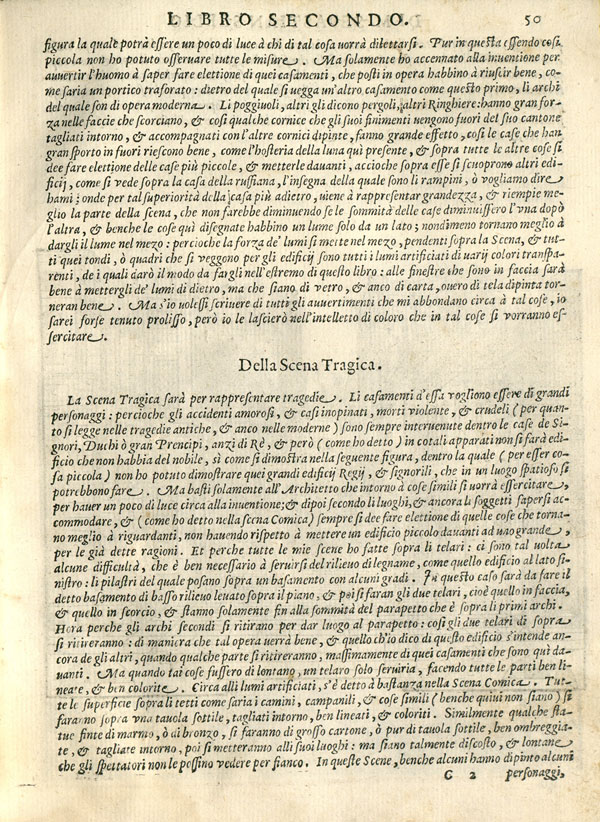 LIBRO SECONDO. 50
figura la quale potrà essere un poco di luce à chi di tal cosa uorrà dilettarsi. Pur in questa essendo cosi
piccola non ho potuto osseruare tutte le misure. Ma solamente ho accennato alla inuentione per
auuertir l'huomo à saper fare elettione di quei casamenti, che posti in opera habbino à riuscir bene, co-
me saria un portico traforato: dietro del quale si uegga un'altro casamento come questo primo, li archi
del quale son di opera moderna. Li poggiuoli, altri gli dicono pergoli, altri Ringhiere: hanno gran for-
za nelle faccie che scorciano, & cosi qualche cornice che gli suoi finimenti uengono fuori del suo cantone
tagliati intorno, & accompagnati con l'altre cornici dipinte, fanno grande effetto, cosi le case che han
gran sporto in fuori riescono bene, come l'hosteria della luna quì presente, & sopra tutte le altre cose si
dee fare elettione delle case più piccole, & metterle dauanti, accioche sopra esse si scuoprono altri edi-
ficij, come si vede sopra la casa della ruffiana, l'insegna della quale sono li rampini, ò vogliamo dire
hami: onde per tal superiorità della casa più adietro, uiene à rappresentar grandezza, & riempie me-
glio la parte della scena, che non farebbe diminuendo se le sommità delle case diminuissero l'vna dopò
l'altra, & benche le cose quì disegnate habbino un lume solo da un lato; nondimeno tornano meglio à
dargli il lume nel mezo: percioche la forza de' lumi si mette nel mezo, pendenti sopra la Scena, & tut-
ti quei tondi, ò quadri che si veggono per gli edificij sono tutti i lumi artificiati di uarij colori transpa-
renti, de i quali darò il modo da fargli nell'estremo di questo libro: alle finestre che sono in faccia sarà
bene à mettergli de' lumi di dietro, ma che siano di vetro, & anco di carta, ouero di tela dipinta tor-
neran bene. Ma s'io uolessi scriuere di tutti gli auuertimenti che mi abbondano circa à tal cose, io
sarei forse tenuto prolisso, però io le lascierò nell'intelletto di coloro che in tal cose si vorranno es-
sercitare.
Della Scena Tragica.
La Scena Tragica sarà per rappresentare tragedie. Li casamenti d'essa vogliono essere di grandi
personaggi: percioche gli accidenti amorosi, & casi inopinati, morti violente, & crudeli (per quan-
to si legge nelle tragedie antiche, & anco nelle moderne) sono sempre interuenute dentro le case de Si-
gnori, Duchi ò gran Prencipi, anzi di Rè, & però (come ho detto) in cotali apparati non si farà edi-
ficio che non habbia del nobile, sì come si dimostra nella seguente figura, dentro la quale (per esser co-
sa piccola) non ho potuto dimostrare quei grandi edificij Regij, & signorili, che in un luogo spatioso si
potrebbono fare. Ma basti solamente all'Architetto che intorno à cose simili si vorrà essercitare,
per hauer un poco di luce circa alla inuentione; & dipoi secondo li luoghi, & ancora li soggetti sapersi ac-
commodare, & (come ho detto nella scena Comica) sempre si dee fare elettione di quelle cose che torna-
no meglio à riguardanti, non hauendo rispetto à mettere un edificio piccolo dauanti ad uno grande,
per le già dette ragioni. Et perche tutte le mie scene ho fatte sopra li telari: ci sono tal uolta
alcune difficultà, che è ben necessario à seruirsi del rilieuo di legname, come quello edificio al lato si-
nistro: li pilastri del quale posano sopra un basamento con alcuni gradi. In questo caso sarà da fare il
detto basamento di basso rilieuo leuato sopra il piano, & poi si faran gli due telari, cioè quello in faccia,
& quello in scorcio, & stanno solamente fin alla sommità del parapetto che è sopra li primi archi.
Hora perche gli archi secondi si ritirano per dar luogo al parapetto: cosi gli due telari di sopra
si ritireranno: di maniera che tal opera uerrà bene, & quello ch'io dico di questo edificio s'intende an-
cora de gli altri, quando qualche parte si ritireranno, massimamente di quei casamenti che sono qui da-
uanti. Ma quando tai cose fussero di lontano, un telaro solo seruiria, facendo tutte le parti ben li-
neate, & ben colorite. Circa alli lumi artificiati, s'è detto à bastanza nella Scena Comica. Tut-
te le superficie sopra li tetti come saria i camini, campanili, & cose simili (benche quiui non siano) si
faranno sopra vna tauola sottile, tagliati intorno, ben lineati, & coloriti. Similmente qualche sta-
tue finte di marmo, ò di bronzo, si faranno di grosso cartone, ò pur di tauola sottile, ben ombreggia-
te, & tagliate intorno, poi si metteranno alli suoi luoghi: ma siano talmente discosto, & lontane
che gli spettatori non le possino vedere per fianco. In queste Scene, benche alcuni hanno dipinto alcuni
C 2 personaggi,